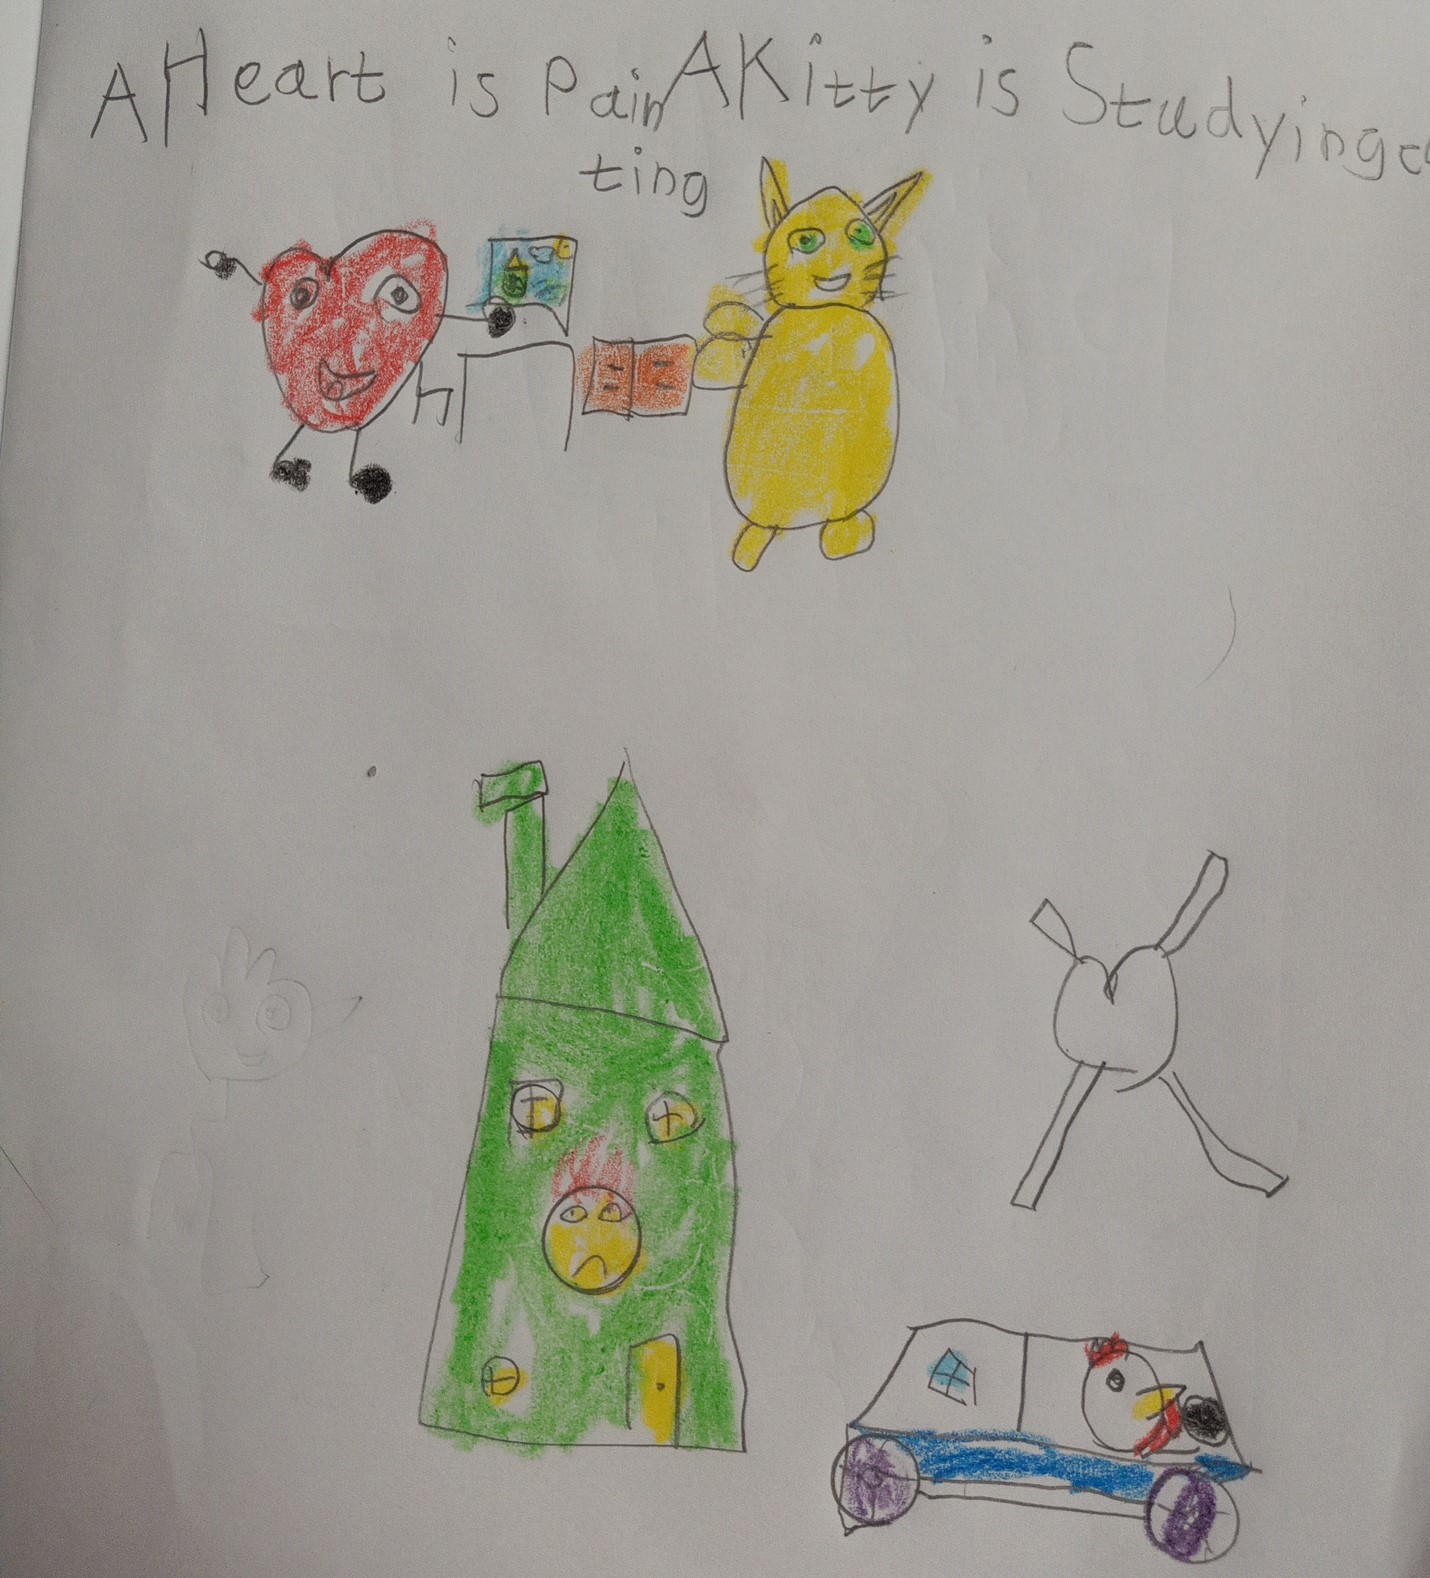 A Heart is Pain
ting
A Kitty is Studying